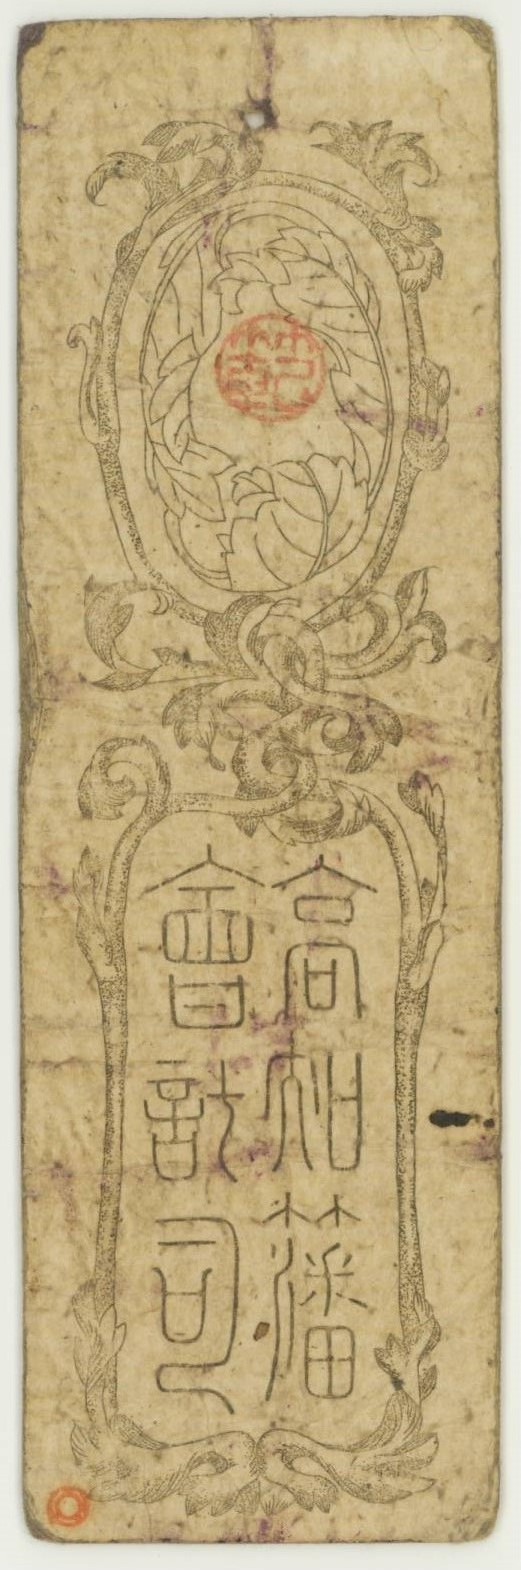 高知藩
會計司